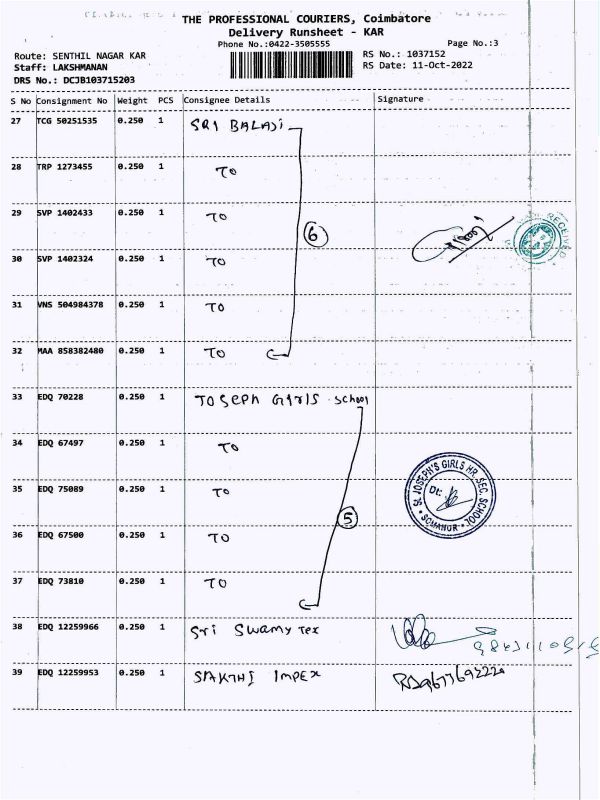 THE PROFESSIONAL COURIERS, Coimbatore
Delivery Runsheet - KAR
Phone No.:0422-3505555
Page No.:3
Route: SENTHIL NAGAR KAR
RS No.: 1037152
Staff: LAKSHMANAN
RS Date: 11-Oct-2022
DRS No.: DCJB103715203
S No Consignment No Weight PCS Consignee Details Signature
27 TCG 50251535 0.250 1 SRI BALAJI
28 TRP 1273455 0.250 1 TO
29 SVP 1402433 0.250 1 TO
6
RECEIVED
30 SVP 1402324 0.250 1 TO
31 VNS 504984378 0.250 1 TO
32 MAA 858382480 0.250 1 TO
33 EDQ 70228 0.250 1 JOSEPH GIRLS School
34 EDQ 67497 0.250 1 TO
35 EDQ 75089 0.250 1 TO
St. JOSEPH'S GIRLS HR. SEC. SCHOOL
Dt:
SOMANUR
5
36 EDQ 67500 0.250 1 TO
37 EDQ 73810 0.250 1 TO
38 EDQ 12259966 0.250 1 Sri Swamy Tex
39 EDQ 12259953 0.250 1 SAKTHI IMPEX